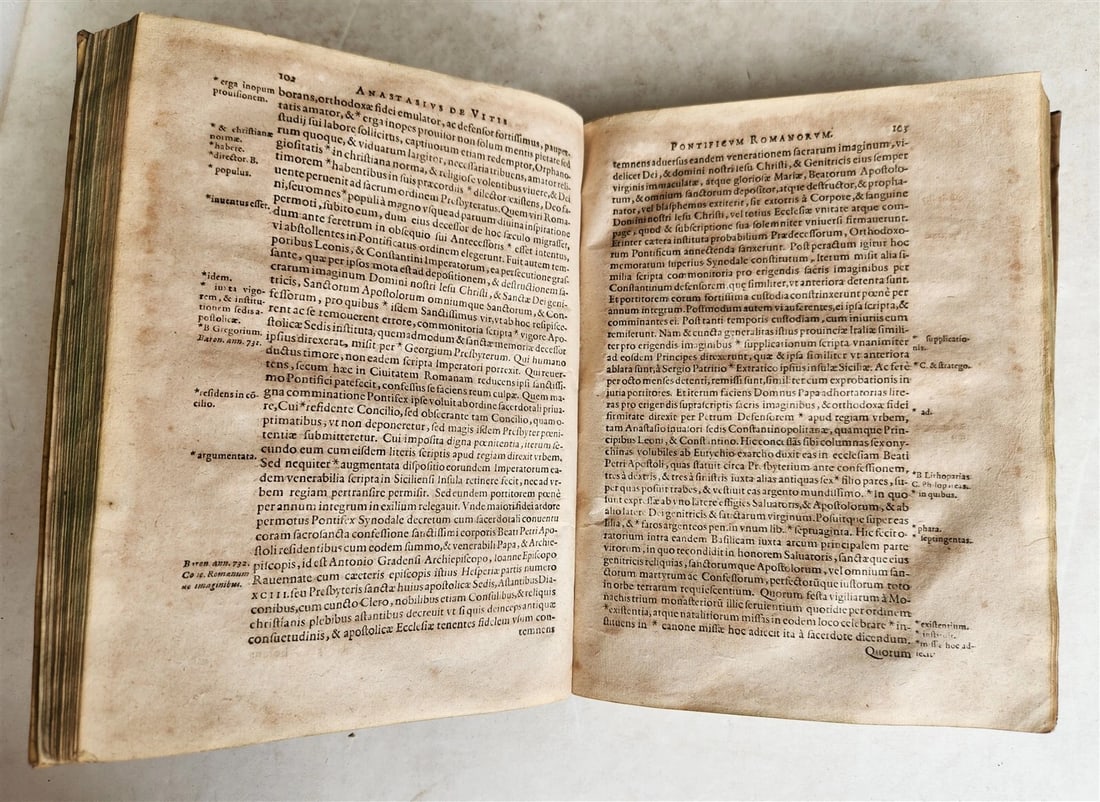 102
ANASTASIVS DE VITIS
* erga inopum
prouisionem.
* & christianæ
normæ.
* habere.
* director. B.
* populus.
* inuentus esset.
* idem.
* iuxta vigo-
rem, & institu-
tionem sedis a-
postolicæ.
* B Gregorium.
Baron. ann. 731.
* residens in cō-
cilio.
* argumentata.
Baron. ann. 732.
Romanum
de imaginibus.
borans, orthodoxæ fidei emulator, ac defensor fortissimus, pauper-
tatis amator, & * erga inopes prouisor non solum mentis pietate sed
studij sui labore sollicitus, captiuorum etiam redemptor, Orphano-
rum quoque, & viduarum largiter, necessaria tribuens, amator reli-
giositatis * in christiana norma, & religiose volentibus viuere, & Dei
timorem * habentibus in suis præcordijs * dilector existens, Deo fa-
uente peruenit ad sacrum ordinem Presbyteratus. Quem viri Roma-
ni, seu omnes * populi à magno vsque ad paruum diuina inspiratione
permoti, subito cum, dum eius decessor de hoc sæculo migrasset,
dum ante feretrum in obsequio sui Antecessoris * esset intentus,
vi abstollentes in Pontificatus ordinem elegerunt. Fuit autem tem-
poribus Leonis, & Constantini Imperatorum, ea persecutione gras-
sante, quæ per ipsos mota est ad depositionem, & destructionem sa-
crarum imaginum Domini nostri Iesu Christi, & Sanctæ Dei geni-
tricis, Sanctorum Apostolorum omniumque Sanctorum, & Con-
fessorum, pro quibus * isdem Sanctissimus vir, vt ab hoc respisce-
rent ac se remouerent errore, commonitoria scripta * vigore Apo-
stolicæ Sedis instituta, quemadmodum & sanctæ memoriæ decessor
ipsius direxerat, misit per * Georgium Presbyterum. Qui humano
ductus timore, non eadem scripta Imperatori porrexit. Qui reuer-
tens, secum hæc in Ciuitatem Romanam reducens ipsi sanctissi-
mo Pontifici patefecit, confessus se faciens reum culpæ. Quem ma-
gna comminatione Pontifex ipse voluit ab ordine sacerdotali priua-
re, Cui * residente Concilio, sed obsecrante tam Concilio, quam o-
ptimatibus, vt non deponeretur, sed magis isdem Presbyter pœni-
tentiæ submitteretur. Cui imposita digna pœnitentia, iterum se-
cundo eum cum eisdem literis scriptis apud regiam direxit vrbem.
Sed nequiter * augmentata dispositio eorundem Imperatorum ea-
dem venerabilia scripta in Siciliensi Insula retinere fecit, nec ad vr-
bem regiam pertransire permisit. Sed eundem portitorem pœnè
per annum integrum in exilium relegauit. Vnde maiori fidei ardore
permotus Pontifex Synodale decretum cum sacerdotali conuentu
coram sacrosancta confessione sanctissimi corporis Beati Petri Apo-
stoli residentibus cum eodem summo, & venerabili Papa, & Archie-
piscopis, id est Antonio Gradensi Archiepiscopo, Ioanne Episcopo
Rauennate cum cæteris episcopis istius Hesperiæ partis numero
XCIII. seu Presbyteris sanctæ huius apostolicæ Sedis, Astantibus Dia-
conibus, cum cuncto Clero, nobilibus etiam Consulibus, & reliquis
christianis plebibus astantibus decreuit vt si quis deinceps antiquæ
consuetudinis, & apostolicæ Ecclesiæ tenentes fidelem vsum con-
temnens
PONTIFICVM ROMANORVM.
103
temnens aduersus eandem venerationem sacrarum imaginum, vi-
delicet Dei, & domini nostri Iesu Christi, & Genitricis eius semper
virginis immaculatæ, atque gloriosæ Mariæ, Beatorum Apostolo-
rum, & omnium sanctorum depositor, atque destructor, & propha-
nator, vel blasphemus extiterit, sit extorris à Corpore, & sanguine
Domini nostri Iesu Christi, vel totius Ecclesiæ vnitate atque com-
page, quod & subscriptione sua solemniter vniuersi firmauerunt.
Et inter cætera instituta probabilium Prædecessorum, Orthodoxo-
rum Pontificum annectenda sanxerunt. Post peractum igitur hoc
memoratum iuperius Synodale constitutum, Iterum misit alia si-
milia scripta commonitoria pro erigendis sacris imaginibus per
Constantinum defensorem, quę similiter, vt anteriora detenta sunt.
Et portitorem eorum fortissima custodia constrinxerunt pœnè per
annum integrum. Postmodum autem vi auferentes, ei ipsa scripta, &
comminantes ei. Post tanti temporis custodiam, cum iniurijs eum
remiserunt. Nam & cuncta generalitas istius prouinciæ Italiæ simili-
ter pro erigendis imaginibus * supplicationum scripta vnanimiter
ad eosdem Principes direxerunt, quæ & ipsa similiter vt anteriora
ablata sunt, à Sergio Patritio * Extratico ipsius insulæ Siciliæ, Ac ferè
per octo menses detenti, remissi sunt, similiter cum exprobationis in-
iuria portitores. Et iterum faciens Domnus Papa adhortatorias lite-
ras pro erigendis suprascriptis sacris imaginibus, & orthodoxæ fidei
firmitate direxit per Petrum Defensorem * apud regiam vrbem,
tam Anastasio inuasori sedis Constantinopolitanæ, quamque Prin-
cipibus Leoni, & Constantino. Hic concessas sibi columnas sex ony-
chinas volubiles ab Eutychio exarcho duxit eas in ecclesiam Beati
Petri Apostoli, quas statuit circa Presbyterium ante confessionem,
tres à dextris, & tres à sinistris iuxta alias antiquas sex * filio pares, su-
per quas posuit trabes, & vestiuit eas argento mundissimo. * In quo
sunt expressæ ab vno latere effigies Saluatoris, & Apostolorum, & ab
alio latere Dei genitricis & sanctarum virginum. Posuitque super eas
lilia, & * faros argenteos pen. in vnum lib. * septuaginta. Hic fecit o-
ratorium intra eandem Basilicam iuxta arcum principalem parte
virorum, in quo recondidit in honorem Saluatoris, sanctæque eius
genitricis reliquias, sanctorumque Apostolorum, vel omnium san-
ctorum martyrum ac Confessorum, perfectorúque iustorum toto
in orbe terrarum requiescentium. Quorum festa vigiliarum à Mo-
nachis trium monasteriorũ illic seruientum quotidie per ordinem
* existentia, atque natalitiorum missas in eodem loco celebrare * in-
stituens in * canone missæ hoc adiecit ita à sacerdote dicendum.
Quorum
* supplicatio-
nis.
* C. & stratego.
* ad.
* B Lithoparias.
* in quibus.
* phara.
* septingentas.
* existentium.
* missæ hoc ad-